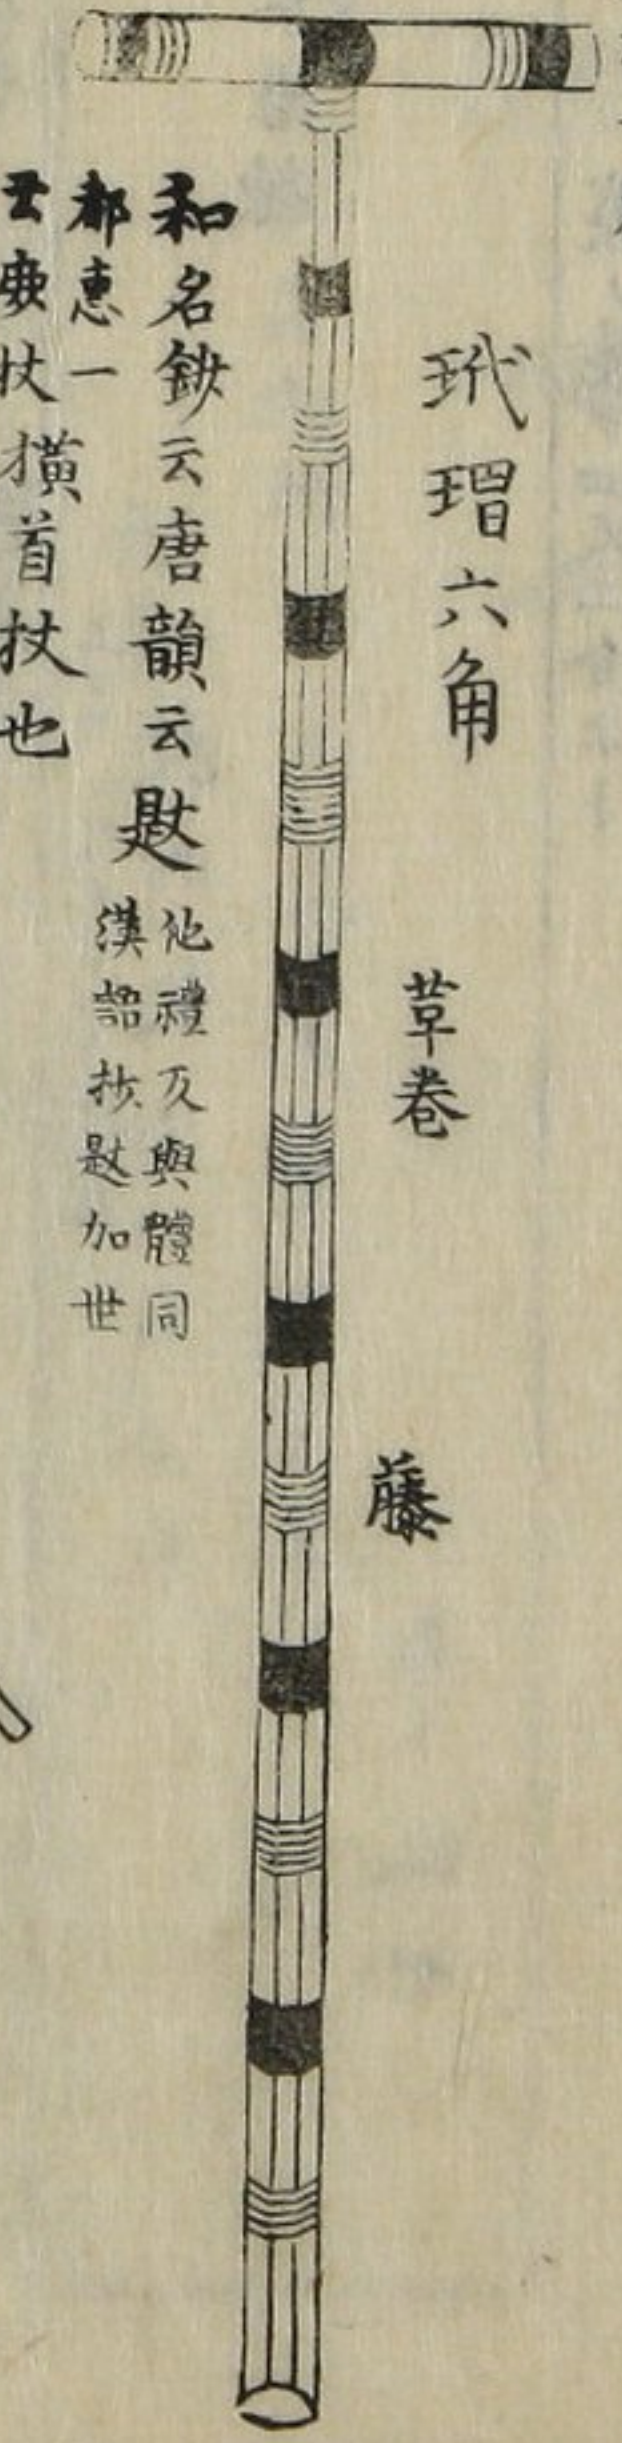 玳瑁六角
草卷
藤
和名鈔云唐韻云
他禮反與體同
漢語抄 加世
都恵一
云鹿杖橫首杖也